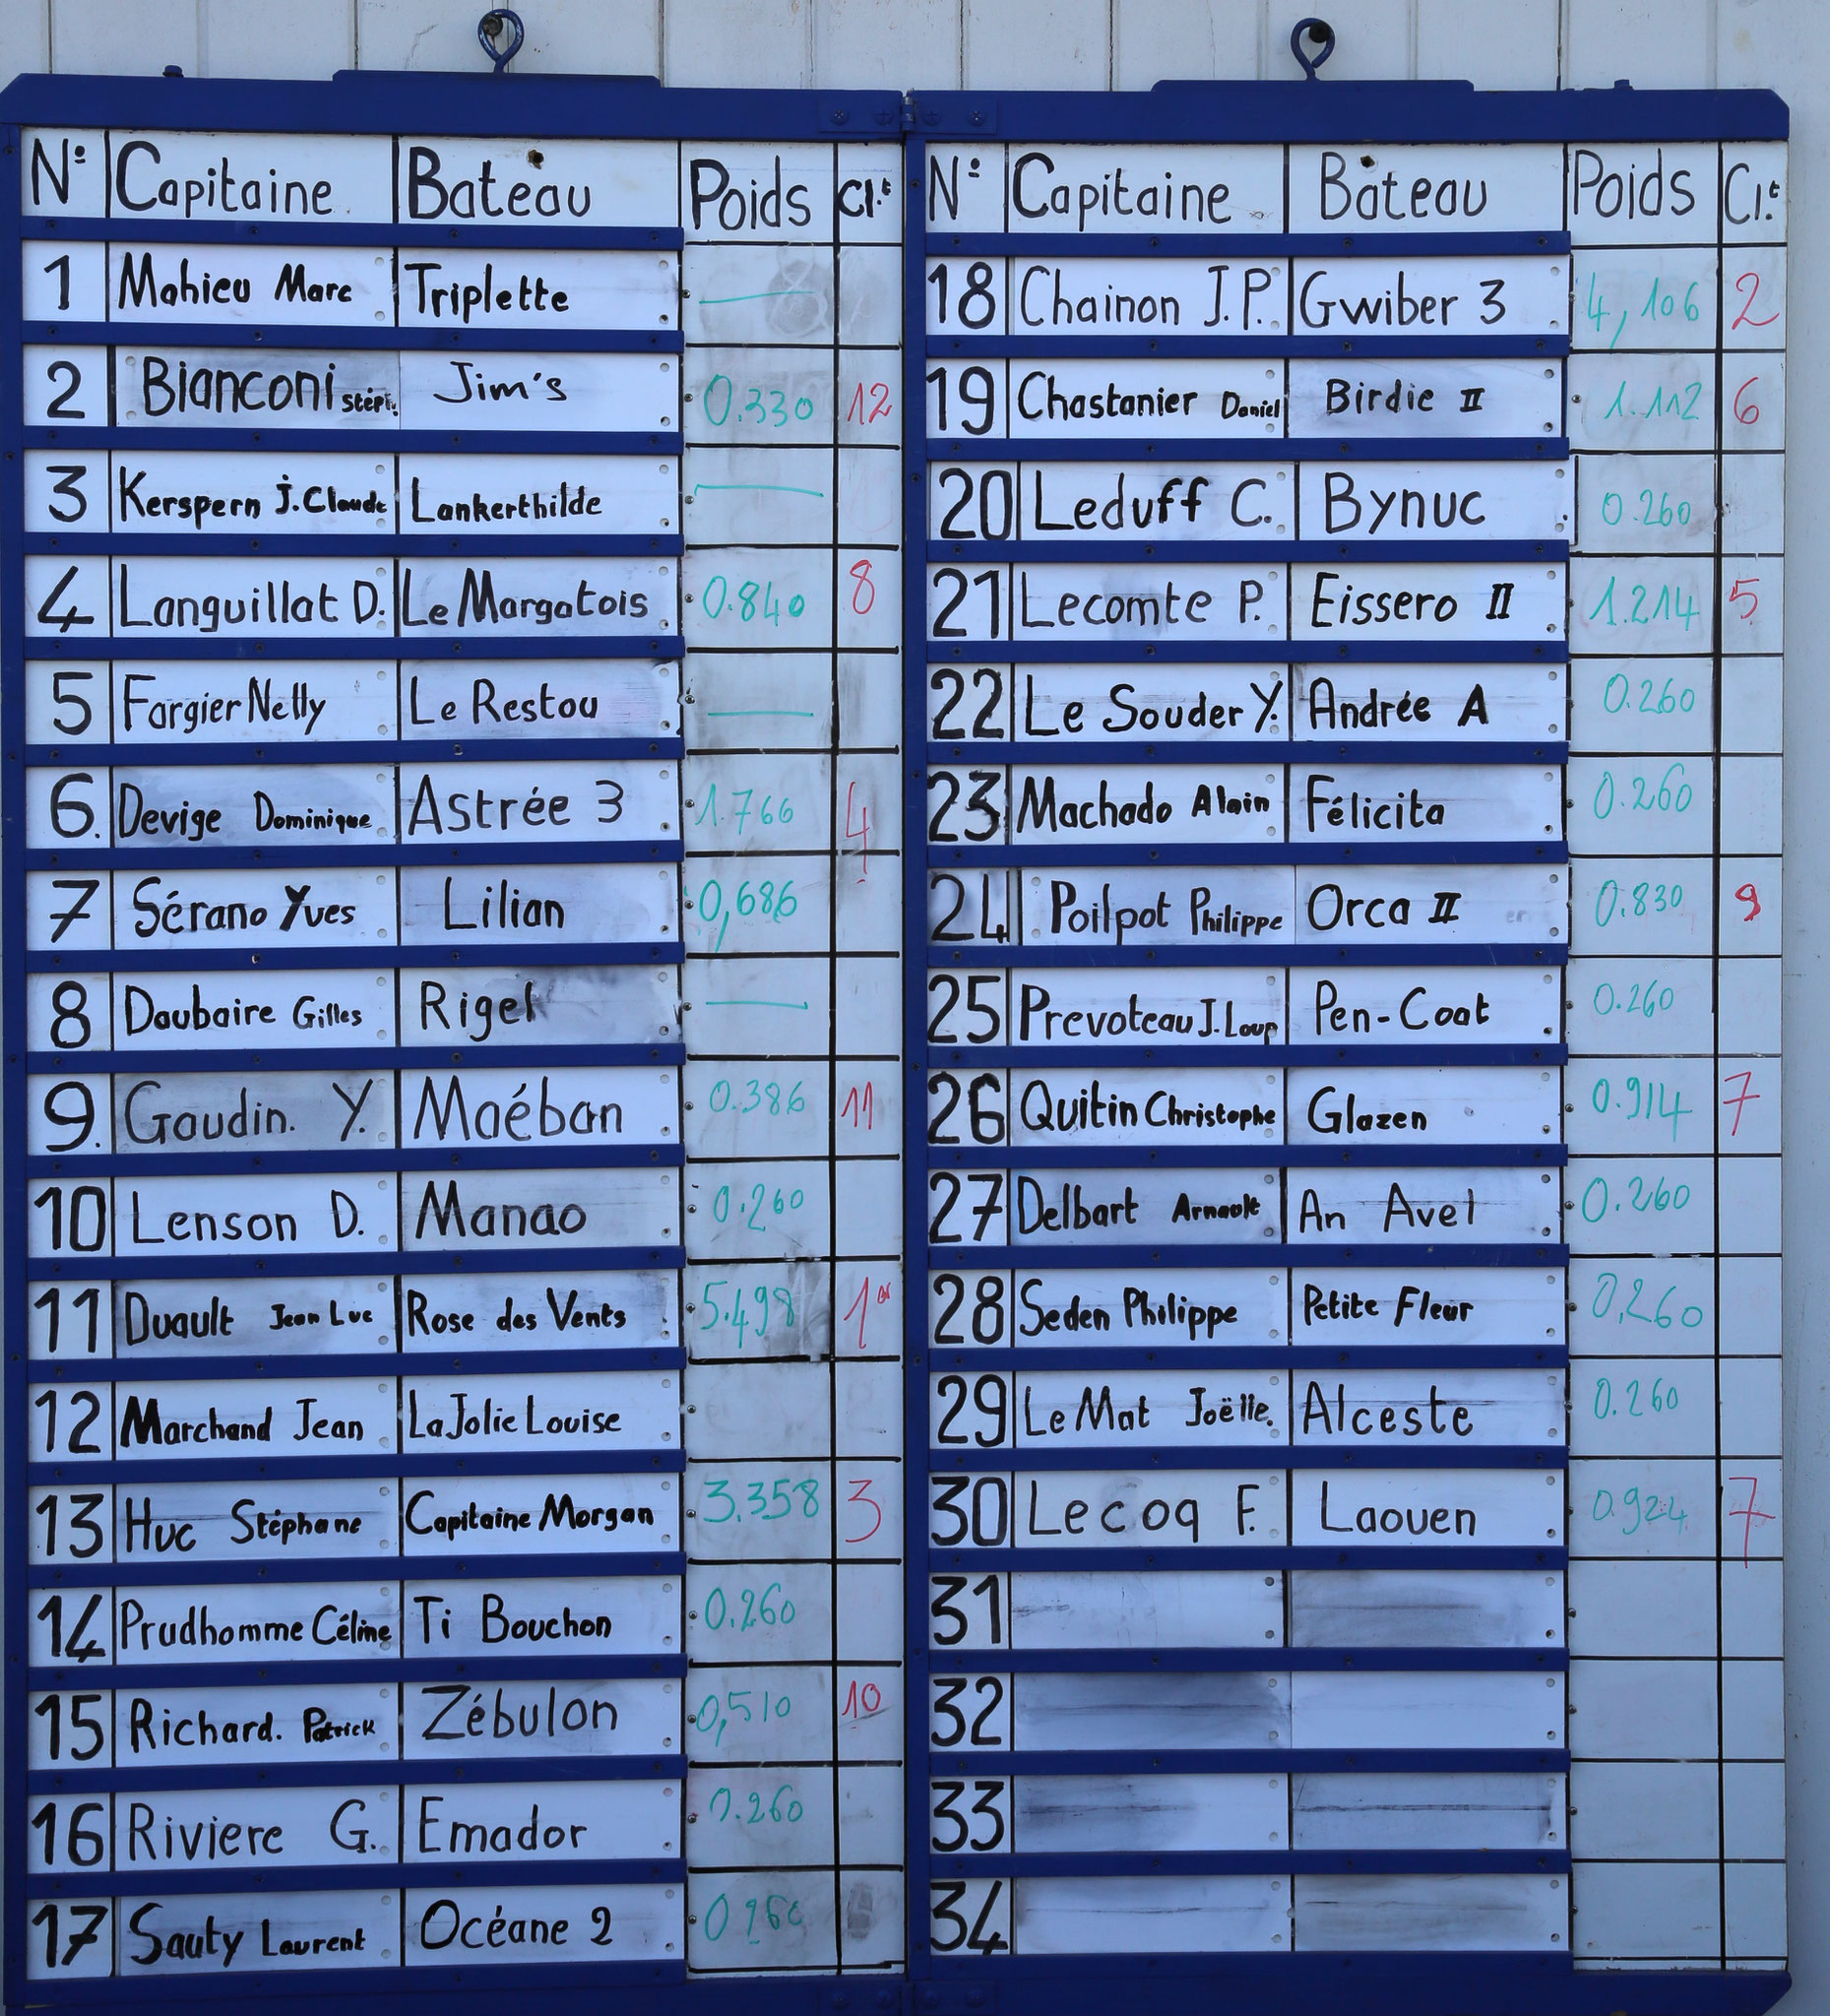 N° Capitaine Bateau Poids Cl.t
1 Mahieu Marc Triplette —
2 Bianconi Stéph. Jim's 0.330 12
3 Kerspern J. Claude Lankerthilde —
4 Languillat D. Le Margatois 0.840 8
5 Fargier Nelly Le Restou —
6. Devige Dominique Astrée 3 1.766 4
7 Sérano Yves Lilian 0,686
8 Daubaire Gilles Rigel —
9. Gaudin. Y. Maéban 0.386 11
10 Lenson D. Manao 0.260
11 Duault Jean Luc Rose des Vents 5.498 1er
12 Marchand Jean La Jolie Louise
13 Huc Stéphane Capitaine Morgan 3.358 3
14 Prudhomme Céline Ti Bouchon 0.260
15 Richard. Patrick Zébulon 0,510 10
16 Riviere G. Emador 0.260
17 Sauty Laurent Océane 2 0.260
N° Capitaine Bateau Poids Cl.t
18 Chainon J.P. Gwiber 3 4,106 2
19 Chastanier Daniel Birdie II 1.112 6
20 Leduff C. Bynuc 0.260
21 Lecomte P. Eissero II 1.214 5
22 Le Souder Y. Andrée A 0.260
23 Machado Alain Félicita 0.260
24 Poilpot Philippe Orca II 0.830 9
25 Prevoteau J. Loup Pen-Coat 0.260
26 Quitin Christophe Glazen 0.914 7
27 Delbart Arnault An Avel 0.260
28 Seden Philippe Petite Fleur 0,260
29 Le Mat Joëlle. Alceste 0.260
30 Lecoq F. Laouen 0.924 7
31
32
33
34